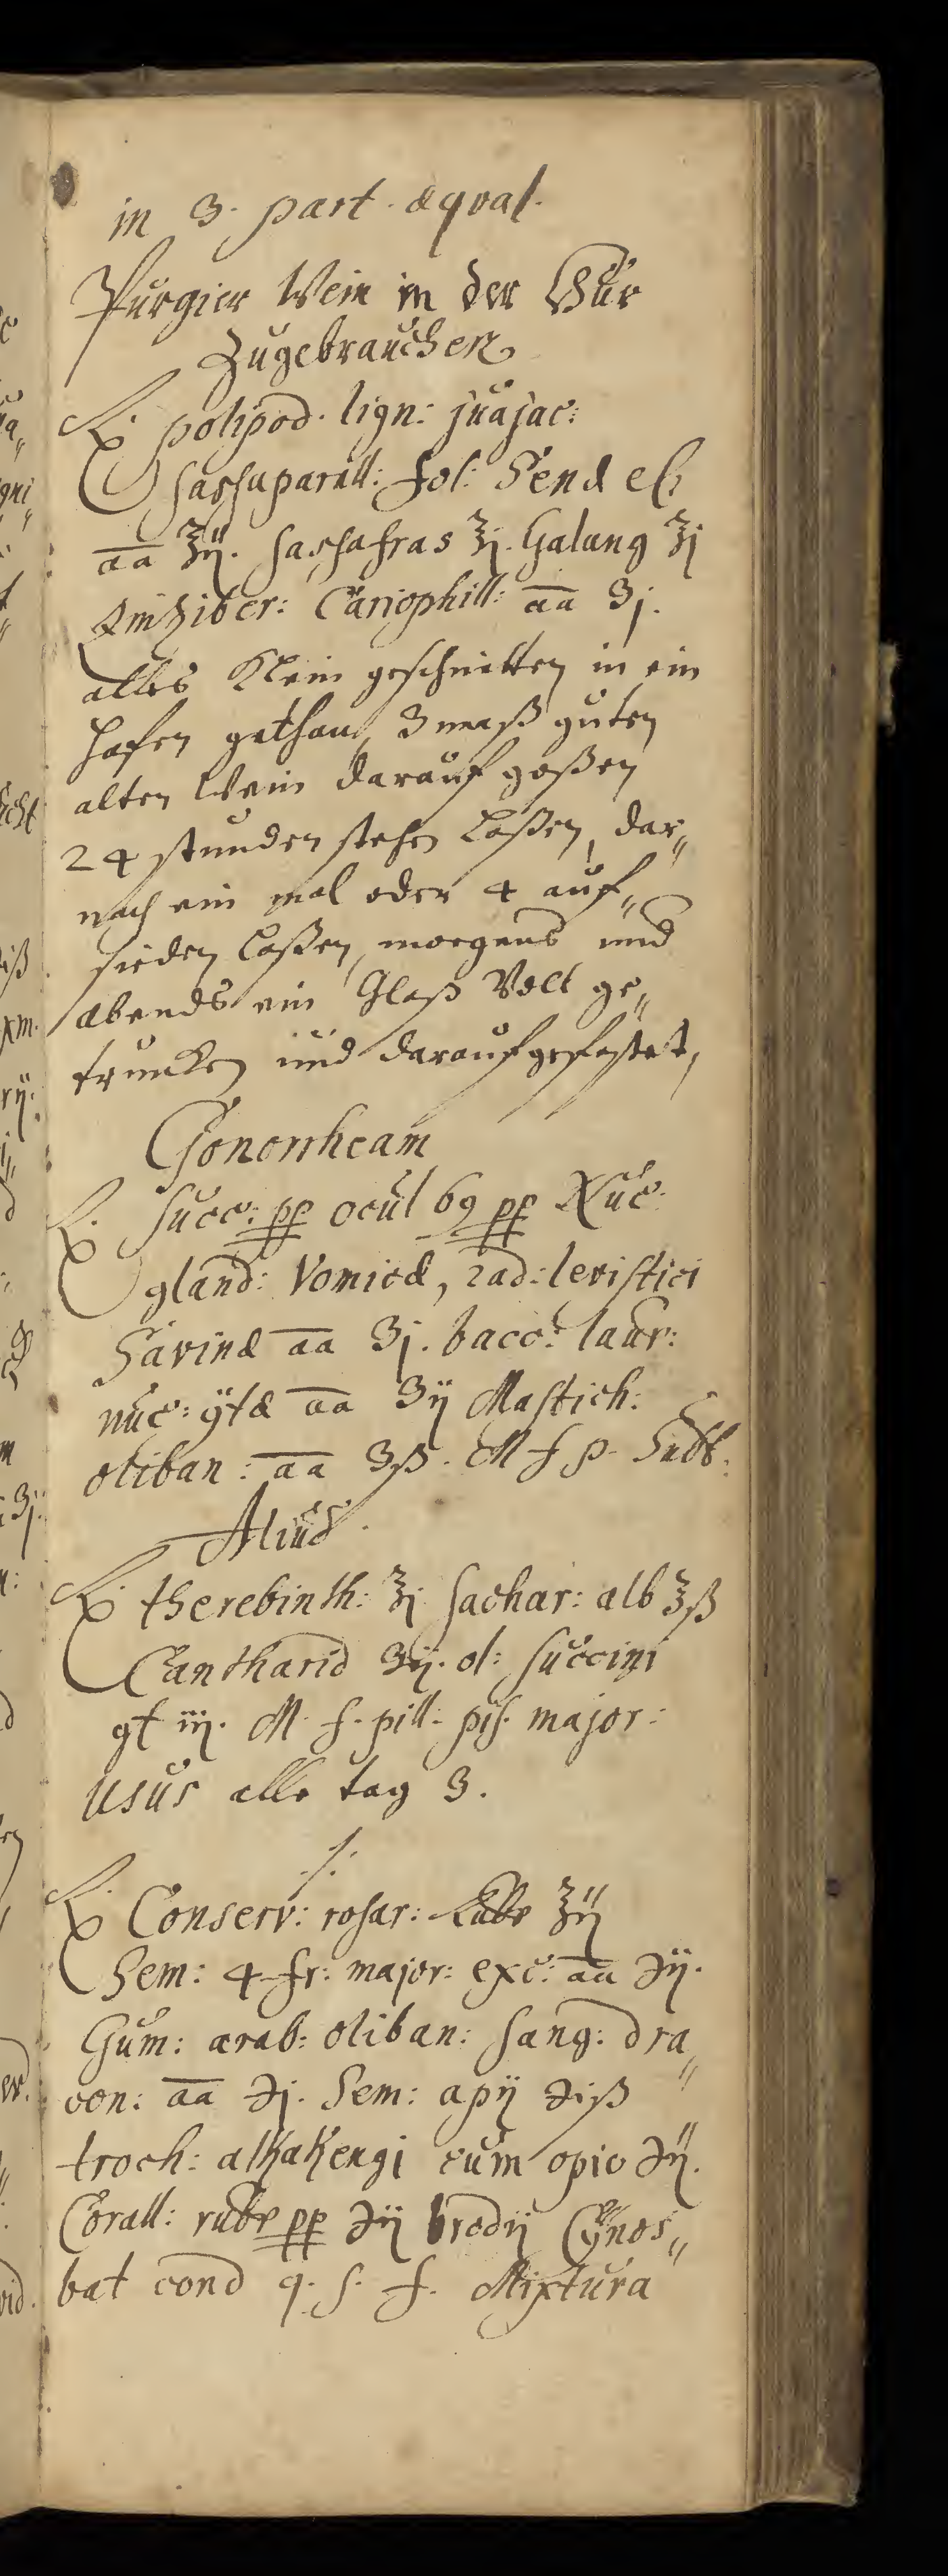 in 3. part. æqual.
Purgier Wein in der Cur
Zugebrauchen
℞. polipod. lign: juajac:
sassaparill: fol: Senæ el:
aa ℥ij. sassafras ℥j. Galang ℥j
Zinziber: Cariophill: aa ʒj.
alles Klein geschnitten in ein
Hafen gethan, 3 maß guten
alten Wein darauf goßen
24 stunden stehen laßen, dar„
nach ein mal oder 4 auf„
sieden laßen, morgens und
abends ein Glaß Voll ge„
truncken und darauf gefastet,
Gonorrheam
℞. Succ: pp ocul 69 pp Nuc:
gland: Vomicæ, rad: levistici
Savinæ aa ʒj. bacc: laur:
nuc: ÿtæ aa ʒij Mastich:
oliban: aa ʒß. M f p. Subt:
Aliud.
℞. therebinth: ℥j Sachar: alb ℥ß
Cantharid ʒij. ol: succini
gt iij. M. f. pill: pis. major:
Usus alle tag 3.
./.
℞ Conserv: rosar: Rubr ℥ij
Sem: 4 fr: major: exc: aa ℈ij.
Gum: arab: oliban: Sang: dra„
con: aa ℈j. Sem: apij ℈iß
troch: alKaKengi cum opio ℈ij.
Corall: rubr pp ℈ij brodij Cÿnos„
bat cond q. s. f. Mixtura